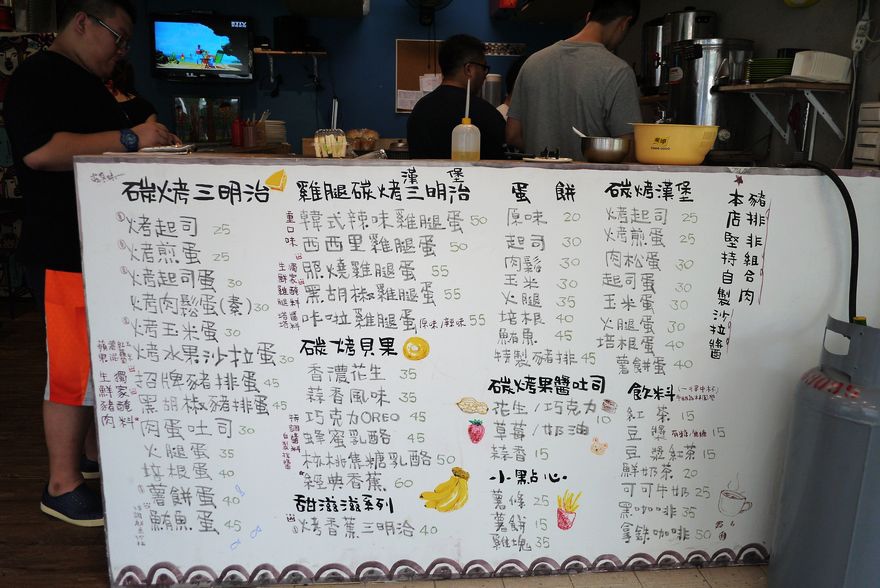 碳烤三明治
烤起司 25
烤煎蛋 25
烤起司蛋 30
烤肉鬆蛋(素) 30
烤玉米蛋 30
烤水果沙拉蛋 30
招牌豬排蛋 45
黑胡椒豬排蛋 45
肉蛋吐司 30
火腿蛋 35
培根蛋 40
薯餅蛋 45
鮪魚蛋 45
獨家醃料
生鮮豬肉
雞腿碳烤三明治
漢堡
韓式辣味雞腿蛋 50
西西里雞腿蛋 50
照燒雞腿蛋 55
黑胡椒雞腿蛋 55
咔啦雞腿蛋 原味/辣味 55
重口味
獨家醃料
生鮮雞腿
碳烤貝果
香濃花生 35
蒜香風味 35
巧克力OREO 45
蜂蜜乳酪 45
核桃焦糖乳酪 50
經典香蕉 60
甜滋滋系列
烤香蕉三明治 40
蛋餅
原味 20
起司 30
肉鬆 30
玉米 30
火腿 35
培根 40
鮪魚 45
特製豬排 45
碳烤果醬吐司
花生/巧克力 10
草莓/奶油
蒜香 15
小點心
薯條 25
薯餅 15
雞塊 35
碳烤漢堡
烤起司 25
烤煎蛋 25
肉松蛋 30
起司蛋 30
玉米蛋 30
火腿蛋 30
培根蛋 40
薯餅蛋 40
飲料
紅茶 15
豆漿 15
豆漿紅茶 15
鮮奶茶 20
可可牛奶 25
黑咖啡 35
拿鐵咖啡 50
豬排非組合肉
本店堅持自製沙拉醬